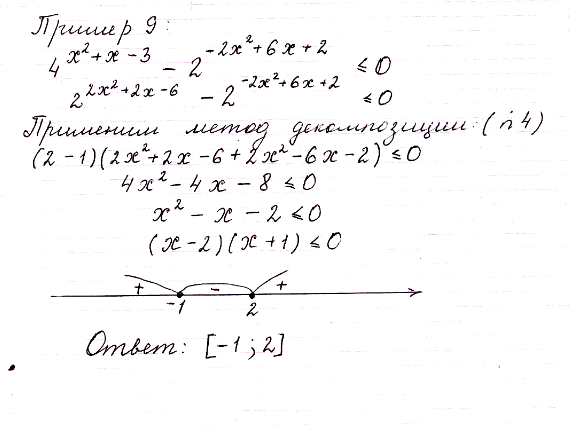 Пример 9:
4^{x²+x-3} - 2^{-2x²+6x+2} ≤ 0
2^{2x²+2x-6} - 2^{-2x²+6x+2} ≤ 0
Применим метод декомпозиции: (п4)
(2-1)(2x²+2x-6+2x²-6x-2) ≤ 0
4x²-4x-8 ≤ 0
x²-x-2 ≤ 0
(x-2)(x+1) ≤ 0
+ - +
-1 2
Ответ: [-1; 2]